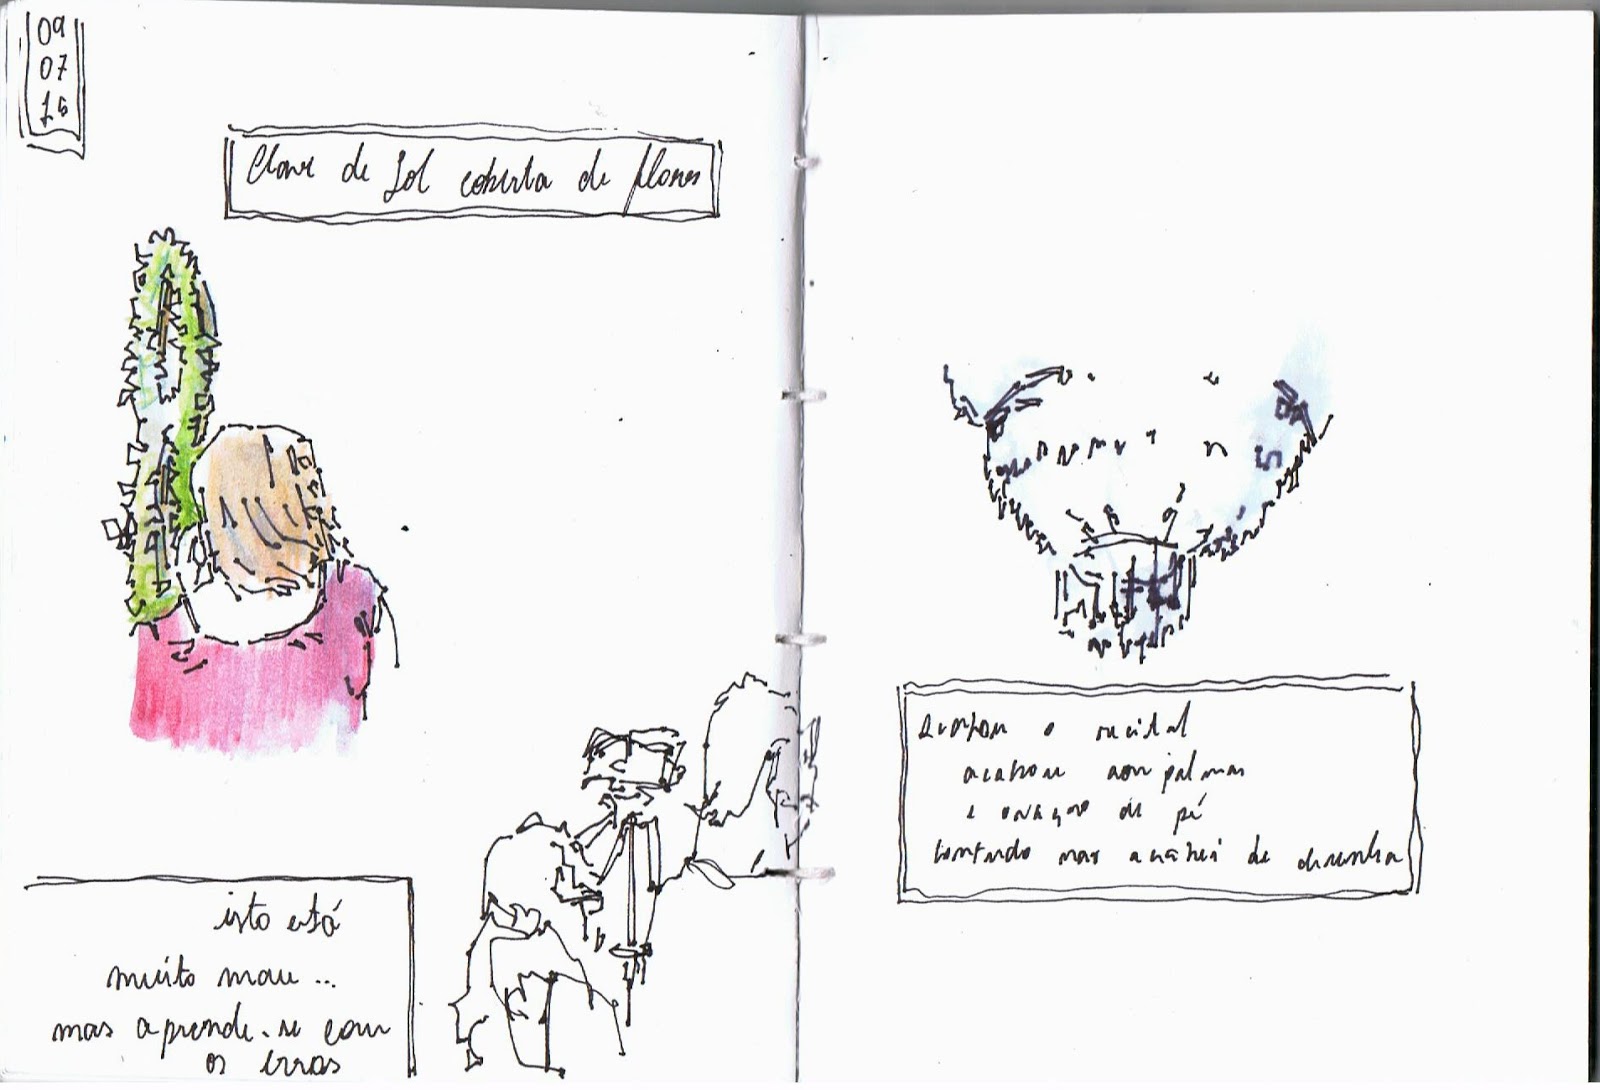 09
07
15
Clave de Sol coberta de flores
isto está
muito mau...
mas aprende-se com
os erros
o recital
acabou com palmas
e ovação de pé
contudo não acabei de desenhar